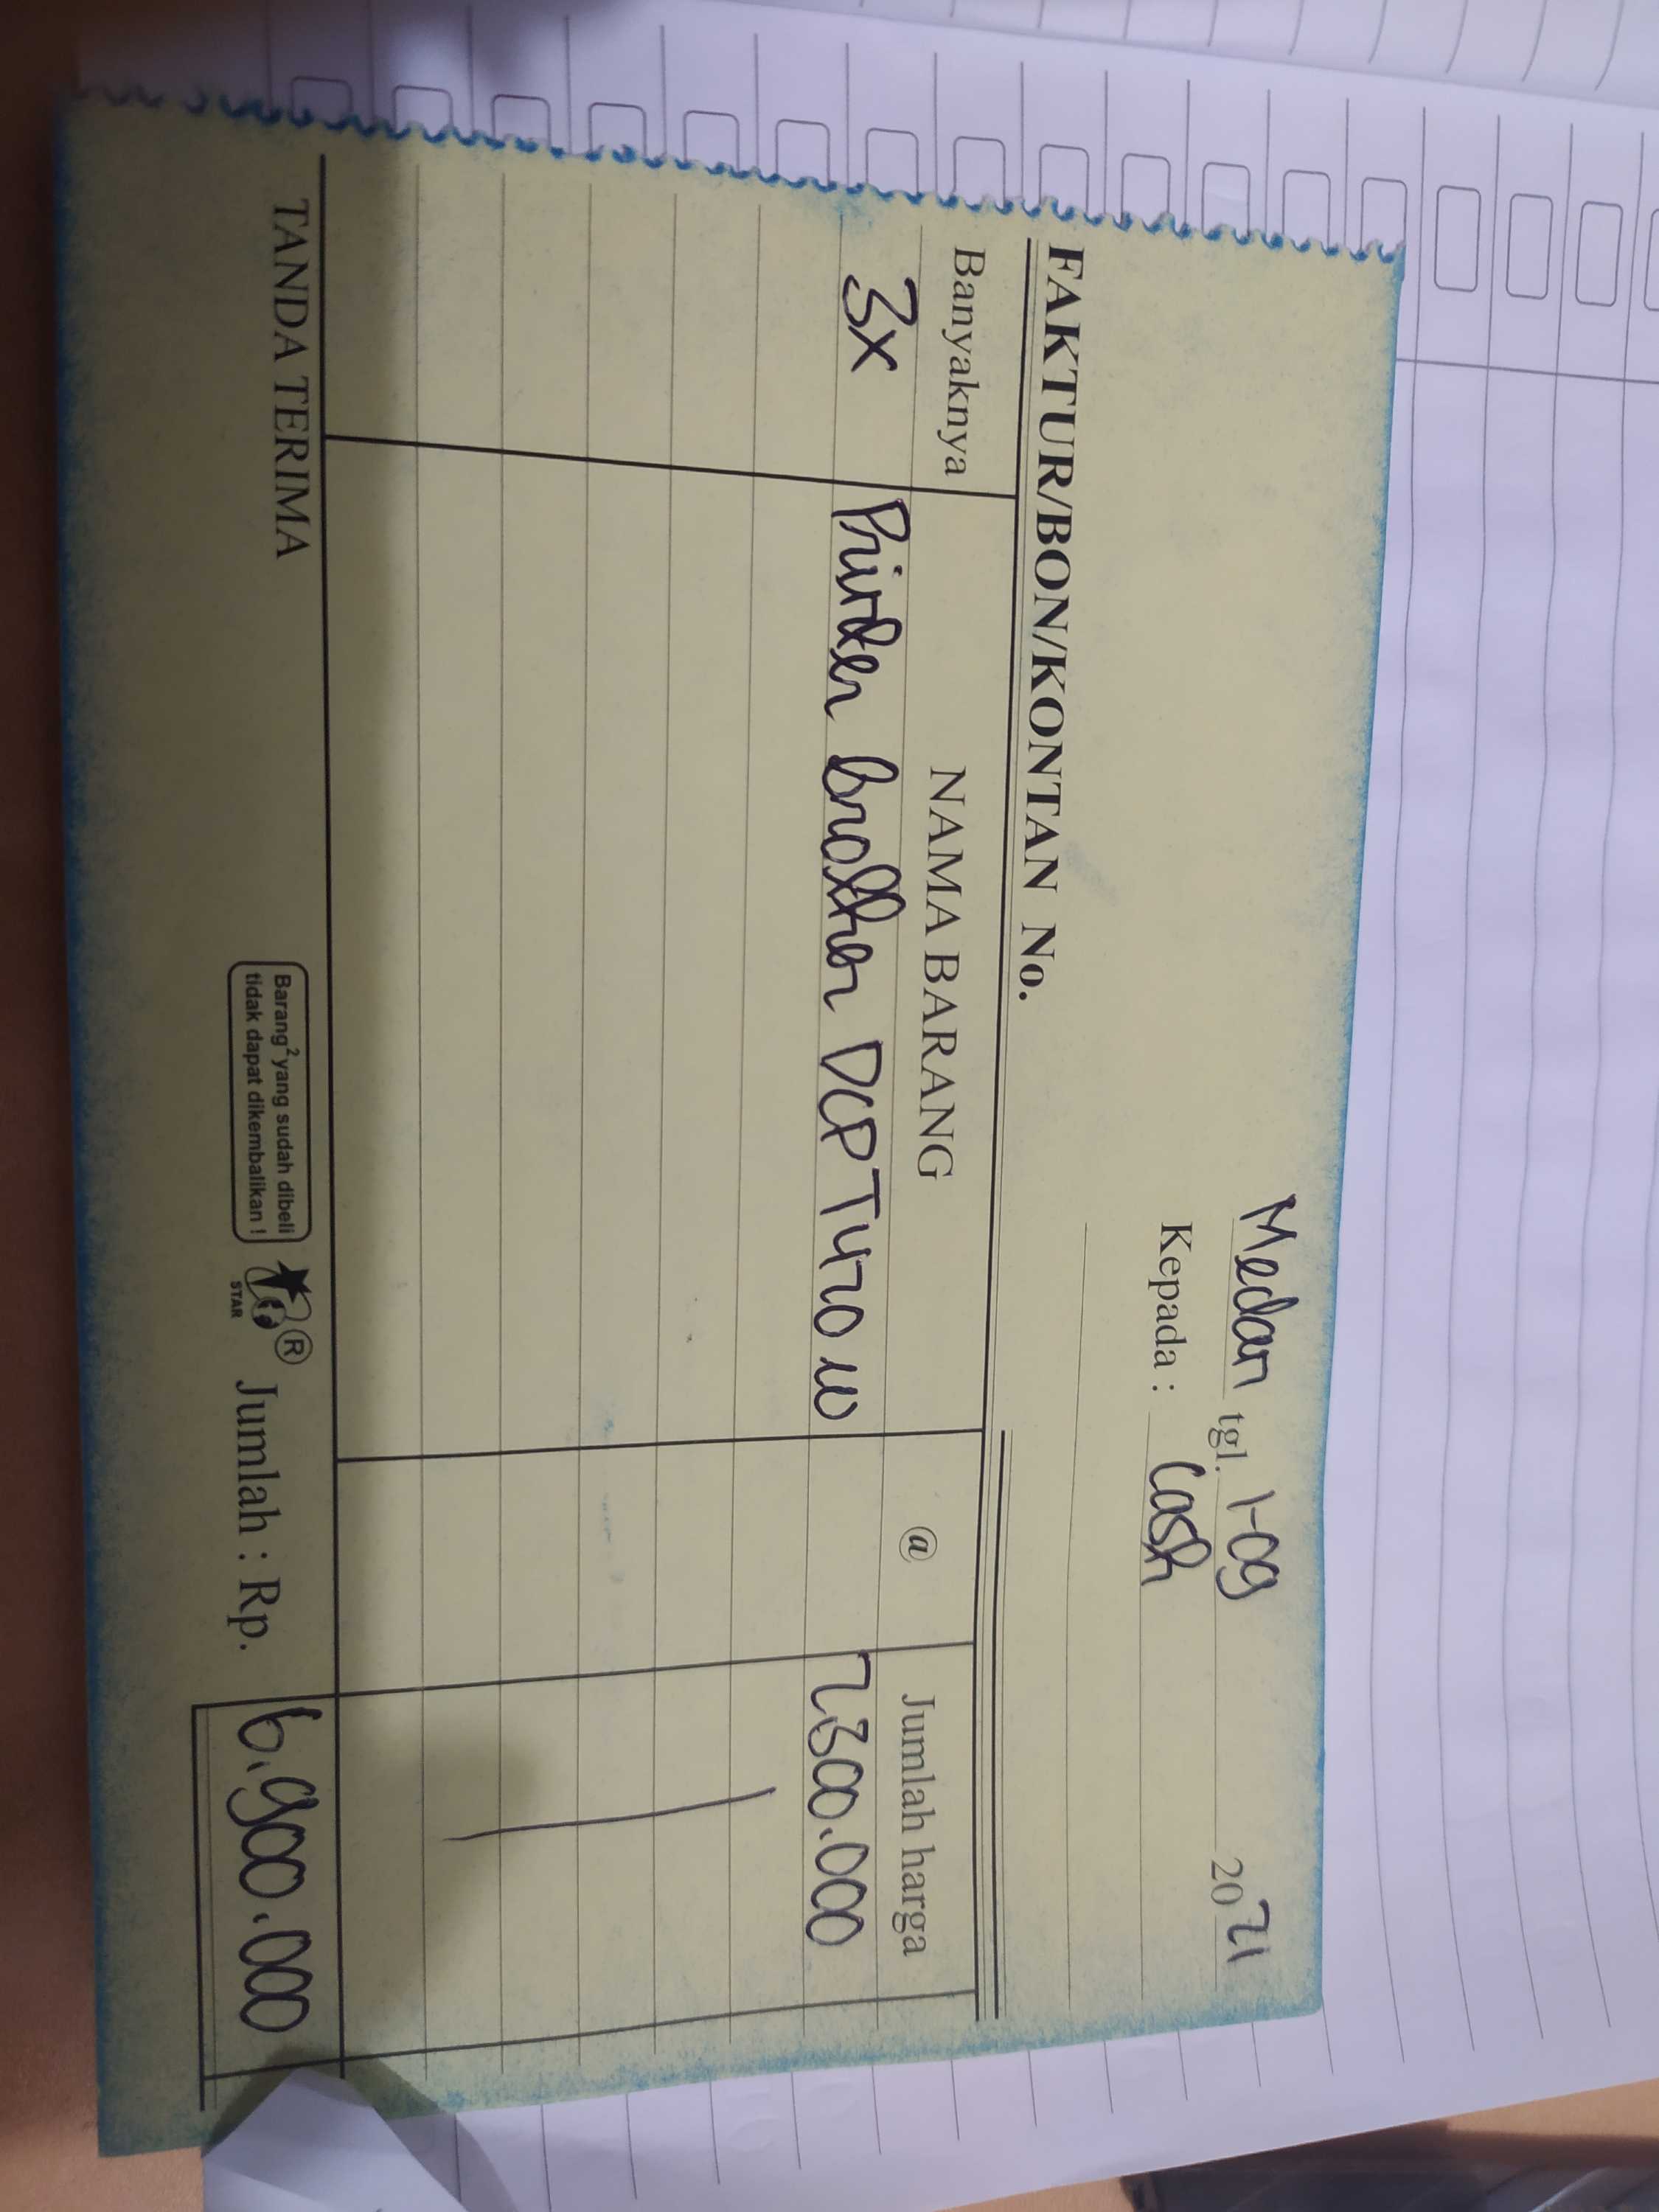 Medan tgl. 1-09 2021
Kepada : Cash
FAKTUR/BON/KONTAN No.
Banyaknya NAMA BARANG @ Jumlah harga
3x Printer brother DCP T470 W 2.300.000
TANDA TERIMA
Barang² yang sudah dibeli
tidak dapat dikembalikan !
STAR
®
Jumlah : Rp. 6.900.000